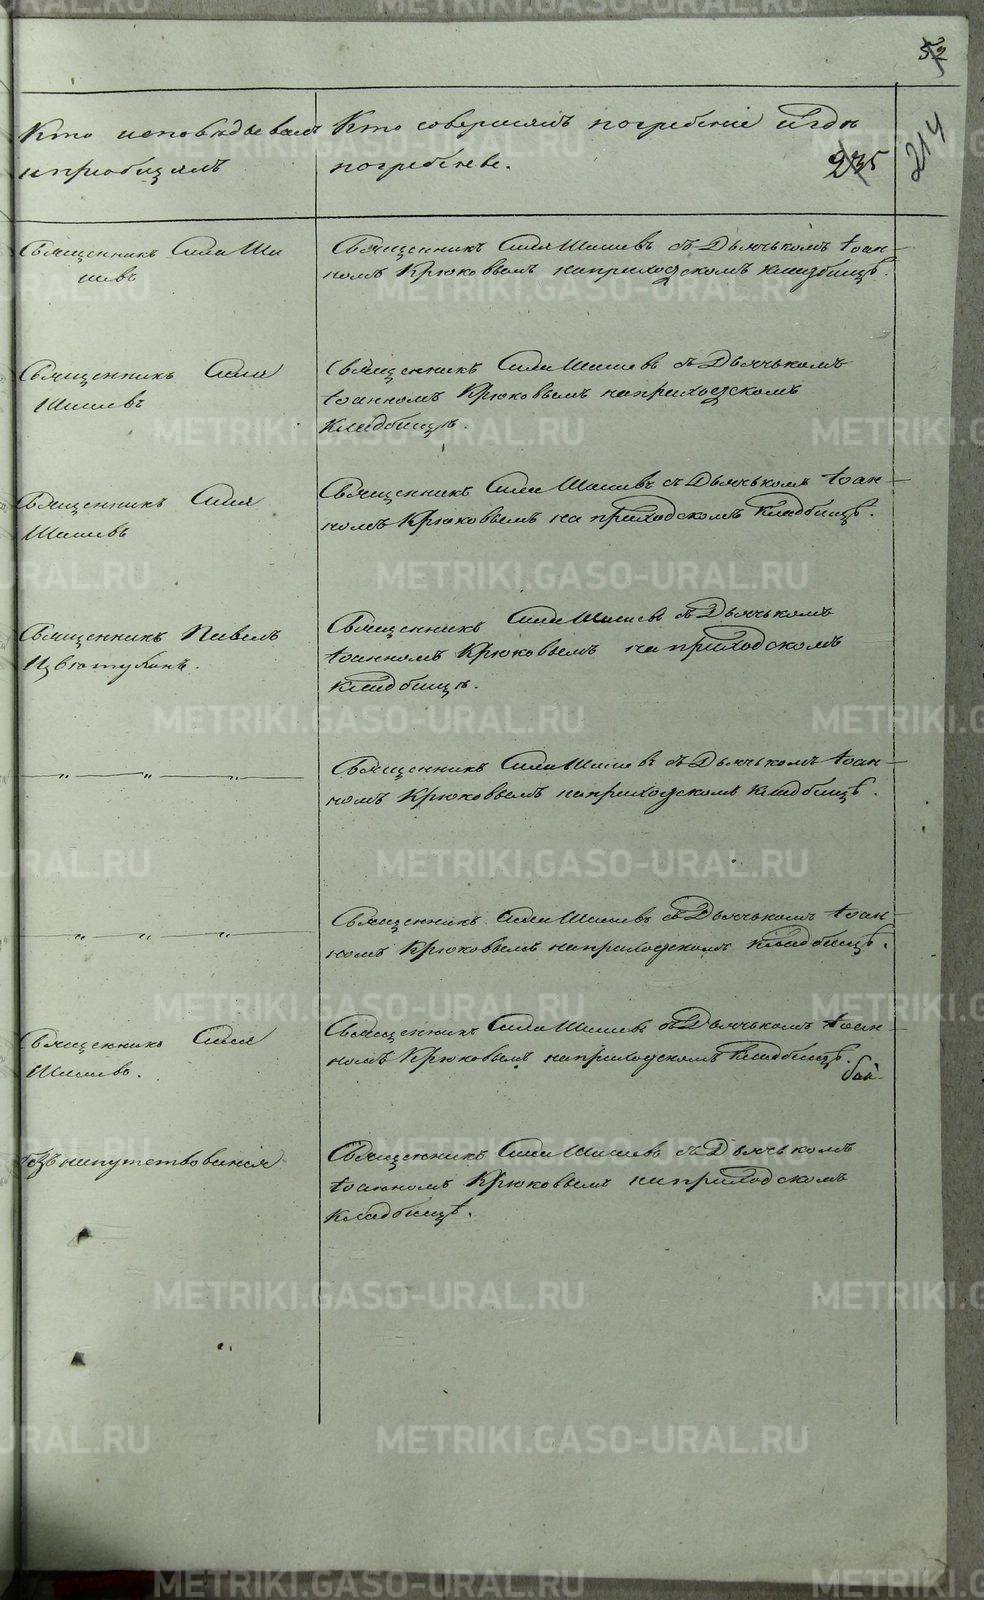 52
Кто исповѣдывалъ
и пріобщалъ
Кто совершалъ погребеніе и гдѣ
погребены.
235
214
Священникъ Сила Ши
шевъ
Священникъ Сила Шишевъ съ Дьячькомъ Іоан-
номъ Крюковымъ на приходскомъ кладбищѣ.
Священникъ Сила
Шишевъ
Священникъ Сила Шишевъ съ Дьячькомъ
Іоанномъ Крюковымъ на приходскомъ
кладбищѣ.
Священникъ Сила
Шишевъ
Священникъ Сила Шишевъ съ Дьячькомъ Іоан-
номъ Крюковымъ на приходскомъ кладбищѣ.
Священникъ Павелъ
Священникъ Сила Шишевъ съ Дьячькомъ
Іоанномъ Крюковымъ на приходскомъ
кладбищѣ.
— „ — „ — „ —
Священникъ Сила Шишевъ съ Дьячькомъ Іоан-
номъ Крюковымъ на приходскомъ кладбищѣ.
— „ — „ — „ —
Священникъ Сила Шишевъ съ Дьячькомъ Іоан-
номъ Крюковымъ на приходскомъ кладбищѣ.
Священникъ Сила
Шишевъ.
Священникъ Сила Шишевъ съ Дьячькомъ Іоан-
номъ Крюковымъ на приходскомъ кладбищѣ.
безъ напутствованія
Священникъ Сила Шишевъ съ Дьячькомъ
Іоанномъ Крюковымъ на приходскомъ
кладбищѣ.
METRIKI.GASO-URAL.RU